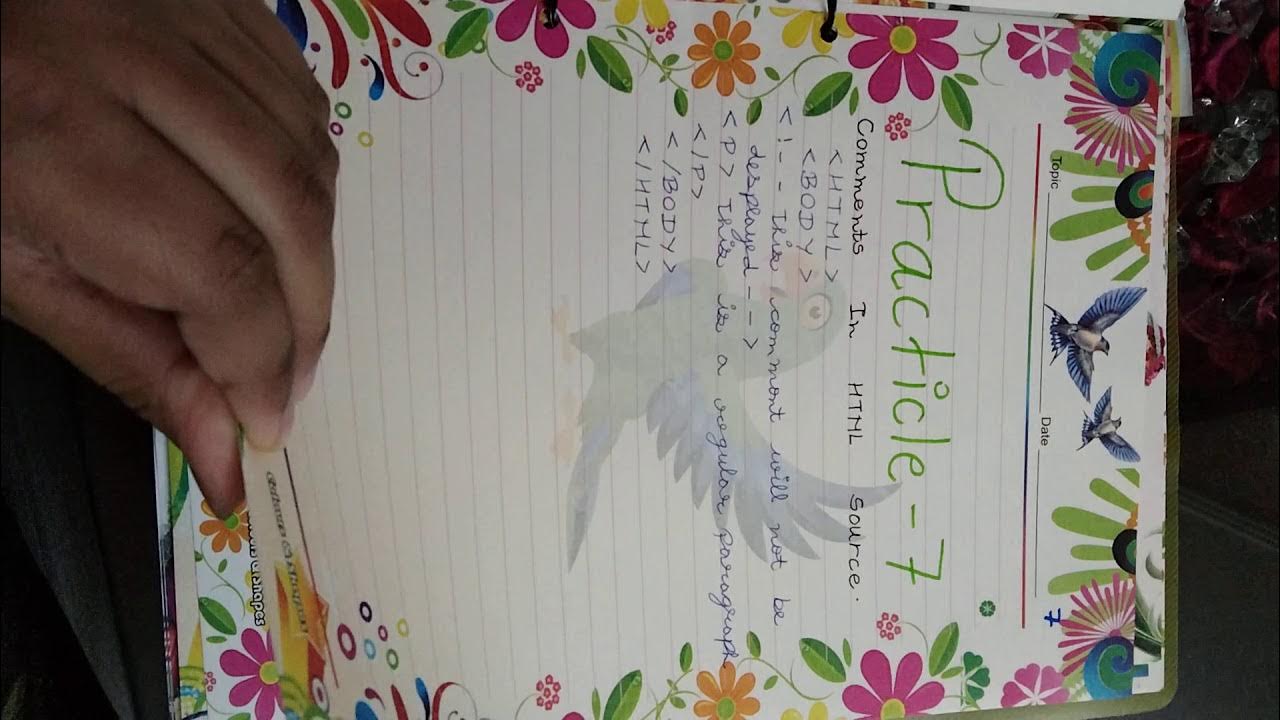 Topic
Date
7
Practicle-7
Comments In HTML Source.
<HTML>
<BODY>
<!-- This commont will not be
desplayed -->
<P> This is a regular paragraph
</P>
</BODY>
</HTML>